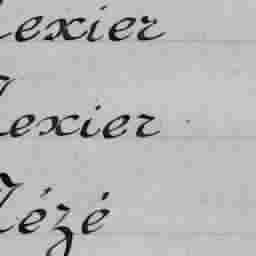 Lexier
Lexier
Lézé